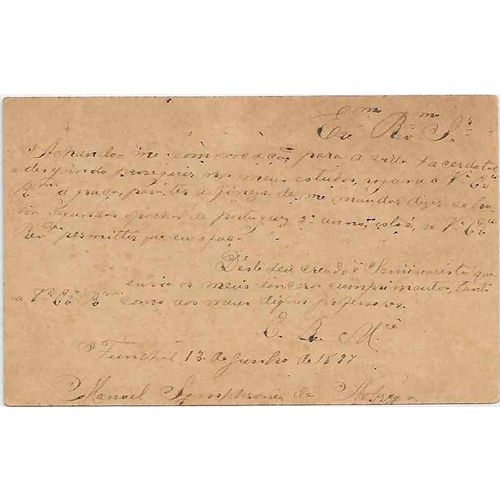 Exmo Rmo Sr
Achando-me com vocação para a vida sacerdotal
desejando proseguir nos meus estudos, rogava a Va Exa
Rma a graça, para ter a fineza de me mandar dizer se
segunda epocha a portuguez 2º anno, isto é, se Va Exa
Rma permittir que eu o faça.
Deste seu creado e Seminarista que
envia os meus sinceros cumprimentos, tanto
a Va Exa Rma como aos meus dignos professores.
E. R. Mce
Funchal 13 de Junho de 1897
Manoel Symphronio da